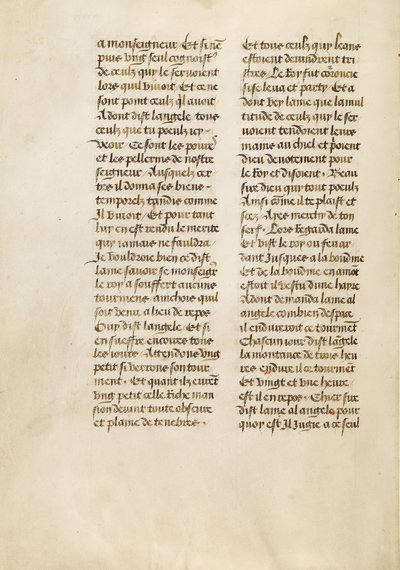 a monseigneur. Et si ne
puis ung seul cognoist̾
de ceulx quy le servoient
lors quil vivoit. Et ce ne
sont point ceulx q̃l avoit
Adont dist langele tous
ceulx que tu peulx icy
veoir Ce sont les povres
et les pellerins de nostre
seigneur. Ausquelz cer
tes il donna ses biens
temporelz tandis comme
Il vivoit. Et pour tant
luy en est rendu le merite
que iamais ne fauldra
Je vouldroie bien ce dist
lame savoir se monseigr̃
le roy a souffert aucuns
tourmens ainchois quil
soit venu a lieu de repos
Ouy dist langele. Et si
en sueffre encores tous
les iours. Attendons ung
petit si verrons son tour
ment. Et quant ilz eurẽt
ung petit celle riche man
sion devint toute obscure
et plaine de tenebres.
Et tous ceulx quy leans
estoient devindrent tri
stres. Le Roy fut coroucie
si se leva et party. Et a
dont vey lame que la mul
titude de ceulx quy le ser
voient tendoient leurs
mains au chiel et p̃oient
dieu devotement pour
le Roy et disoient. Beau
sire dieu quy tout peulz
Ainsi come il te plaist et
scez. Ayes merchy de ton
serf. Lors Regarda lame
et vist le roy ou feu ar
dant Jusques a la boudine
Et de la boudine en amõt
estoit il vestu dune hayre
Adont demanda lame al
angele combien despace
il endureroit ce tourmẽt
Chascun iour dist lãgele
la montance de trois heu
res endure il ce tourmẽt
Et vingt et une heure
est il en repos. Chier sire
dist lame al angele pour
quoy est Il Jugie a ce seul